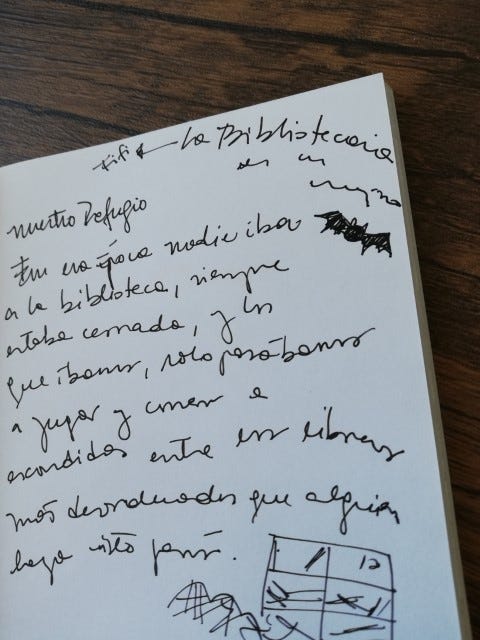 Fifi ← La Bibliotecaria
es un
vampiro
Nuestro Refugio
En esa época nadie iba
a la biblioteca, siempre
estaba cerrada, y los
que íbamos, solo pasábamos
a jugar y comer a
escondidas entre los libreros
más desordenados que alguien
haya visto jamás.
12